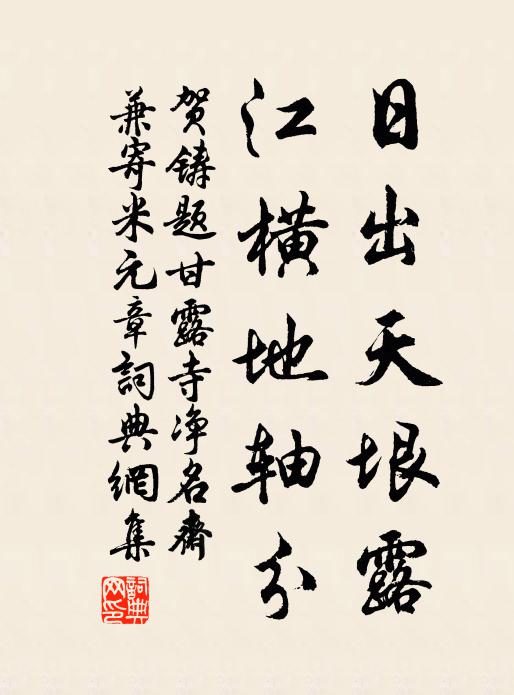 日出天垠露
江橫地轴分
贺铸题甘露寺净名齋
兼寄米元章詞典網集
詞典网印